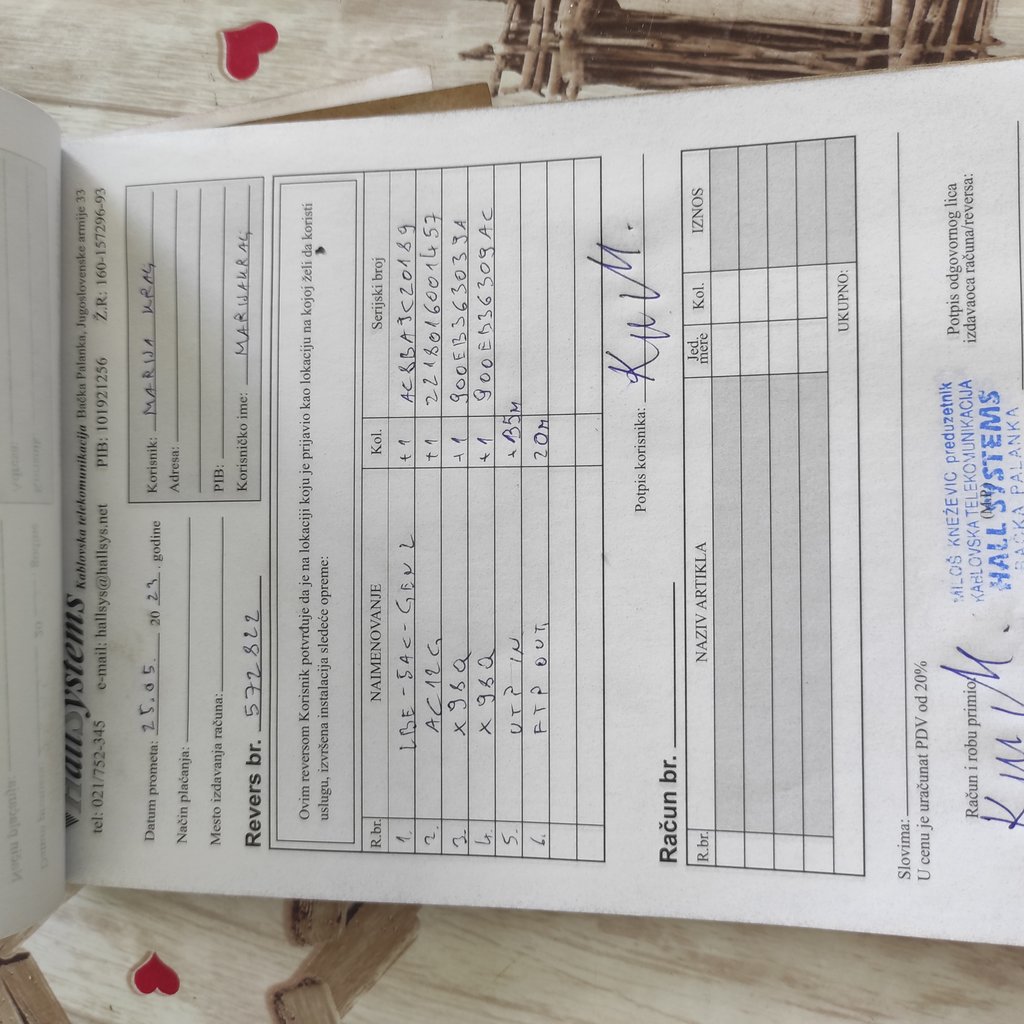 HallSystems Kablovska telekomunikacija Bačka Palanka, Jugoslovenske armije 33
tel: 021/752-345 e-mail: hallsys@hallsys.net PIB: 101921256 Ž.R: 160-157296-93
Datum prometa: 25.05. 20 23. godine
Način plaćanja:
Mesto izdavanja računa:
Korisnik: MARIJA KRAG
Adresa:
PIB:
Korisničko ime: MARIJAKRAG
Revers br. 572822
Ovim reversom Korisnik potvrđuje da je na lokaciji koju je prijavio kao lokaciju na kojoj želi da koristi
uslugu, izvršena instalacija sledeće opreme:
R.br. NAIMENOVANJE Kol. Serijski broj
1. LBE-5AC-GEN2 +1 AC8BA93C20189
2. AC12G +1 2218016001457
3. X98Q +1 900EB363039A
4. X98Q +1 900EB36309AC
5. UTP IN +135M
6. FTP OUT 20M
Potpis korisnika:
Račun br.
R.br. NAZIV ARTIKLA Jed. mere Kol. IZNOS
UKUPNO:
Slovima:
U cenu je uračunat PDV od 20%
Račun i robu primio
(M.P.)
MILOŠ KNEŽEVIĆ preduzetnik
KABLOVSKA TELEKOMUNIKACIJA
HALL SYSTEMS
BAČKA PALANKA
Potpis odgovornog lica
izdavaoca računa/reversa: